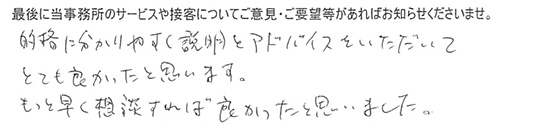 最後に当事務所のサービスや接客についてご意見・ご要望等があればお知らせくださいませ。
的格に分かりやすく説明とアドバイスをいただいて
とても良かったと思います。
もっと早く想談すれば良かったと思いました。